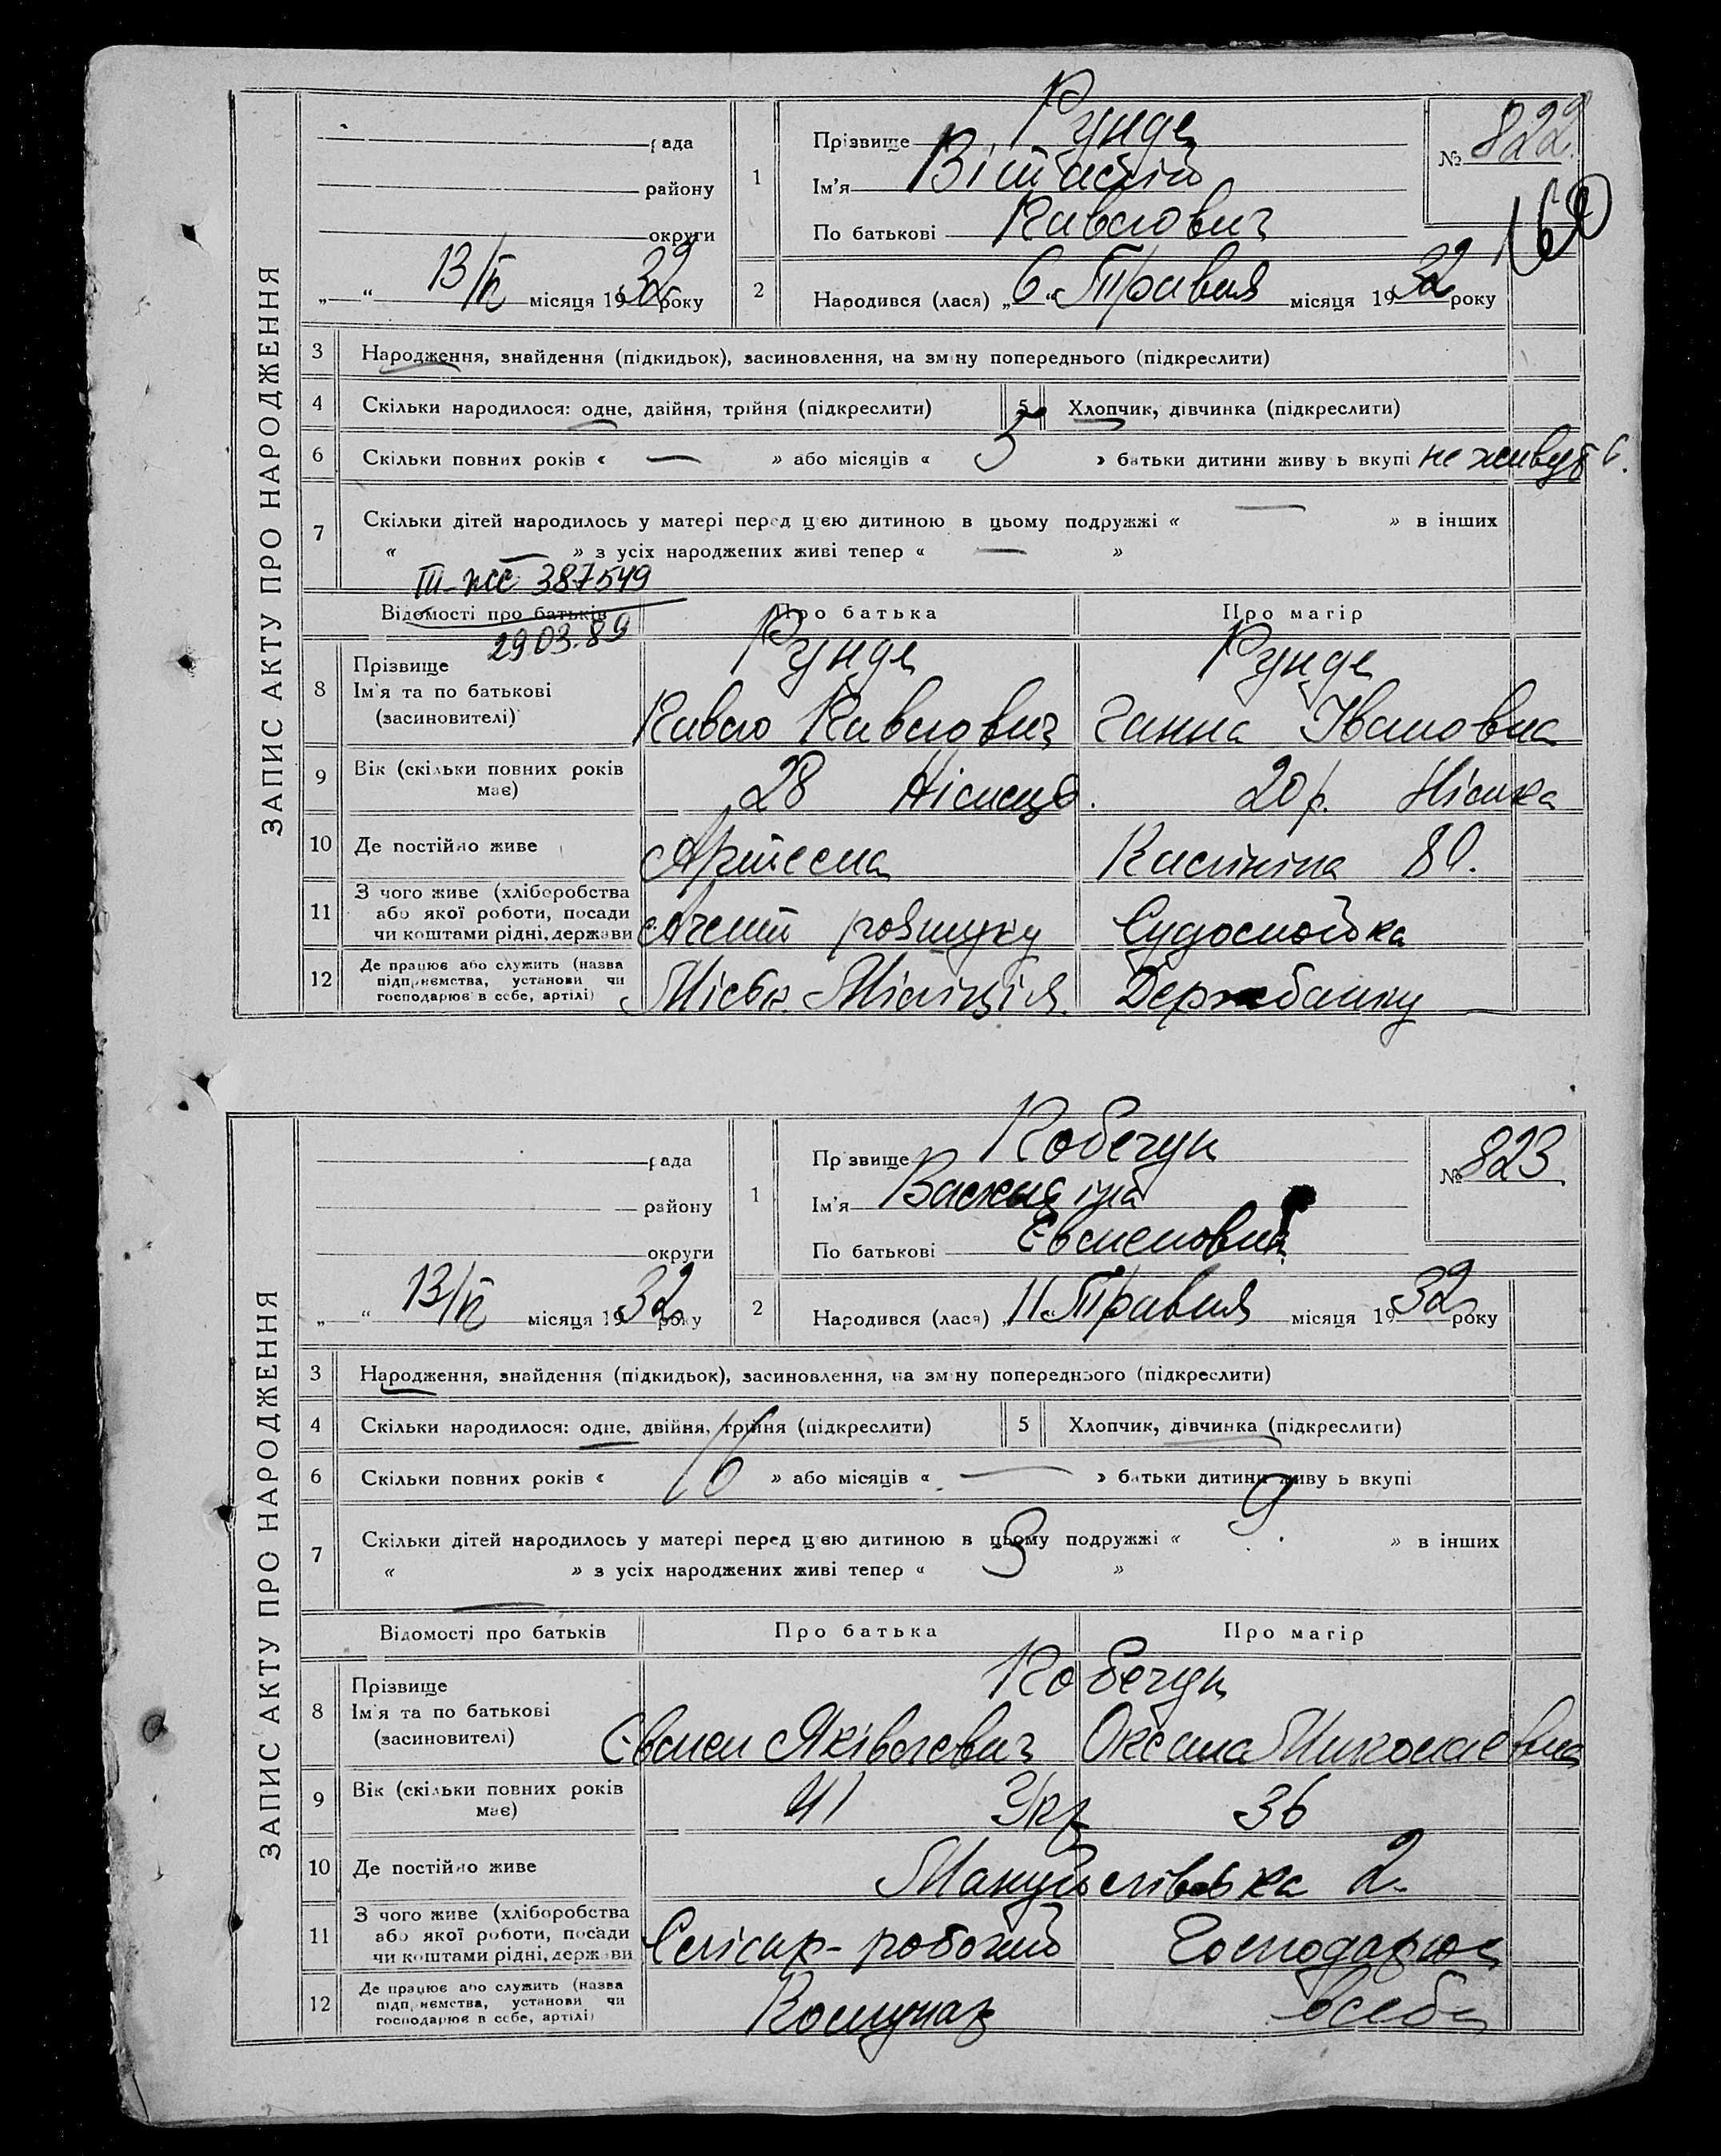 ЗАПИС АКТУ ПРО НАРОДЖЕННЯ
рада
району
округи
„ “ 13/V місяця 1932 року
1
Прізвище Рунде
Ім'я Віталій
По батькові Павлович
№ 822.
160
2
Народився (лася) „6“ Травня місяця 1932 року
3 Народження, знайдення (підкидьок), засиновлення, на зміну попереднього (підкреслити)
4 Скільки народилося: одне, двійня, трійня (підкреслити)
5 Хлопчик, дівчинка (підкреслити)
6 Скільки повних років « — » або місяців « 5 » батьки дитини живуть вкупі не живуть
7 Скільки дітей народилось у матері перед цією дитиною в цьому подружжі « — » в інших
« — » з усіх народжених живі тепер « — »
387549
Відомості про батьків
Про батька
Про матір
29.03.89
8 Прізвище
Ім'я та по батькові
(засиновителі)
Рунде
Павло Павлович
Рунде
Ганна Івановна
9 Вік (скільки повних років має)
28 Німець.
20 р. Німка
10 Де постійно живе
Артема
Калініна 80.
11 З чого живе (хліборобства
або якої роботи, посади
чи коштами рідні, держави
Агент розшуку
Судомойка
12 Де працює або служить (назва
підприємства, установи чи
господарює в себе, артілі)
Міськ. Міліція.
Держбанку
ЗАПИС АКТУ ПРО НАРОДЖЕННЯ
рада
району
округи
„ “ 13/V місяця 1932 року
1
Прізвище Кобегун
Ім'я
По батькові
№ 823
2
Народився (лася) „11“ Травня місяця 1932 року
3 Народження, знайдення (підкидьок), засиновлення, на зміну попереднього (підкреслити)
4 Скільки народилося: одне, двійня, трійня (підкреслити)
5 Хлопчик, дівчинка (підкреслити)
6 Скільки повних років « 16 » або місяців « — » батьки дитини живуть вкупі
7 Скільки дітей народилось у матері перед цією дитиною в цьому подружжі « 9 » в інших
« — » з усіх народжених живі тепер « 3 »
Відомості про батьків
Про батька
Про матір
8 Прізвище
Ім'я та по батькові
(засиновителі)
Кобегун
Євмен Яківлевич
Оксана Миколаєвна
9 Вік (скільки повних років має)
41 Укр 36
10 Де постійно живе
Мануйлівська 2.
11 З чого живе (хліборобства
або якої роботи, посади
чи коштами рідні, держави
Слісар-робочий
Господарює
12 Де працює або служить (назва
підприємства, установи чи
господарює в себе, артілі)
Комунар
в себе